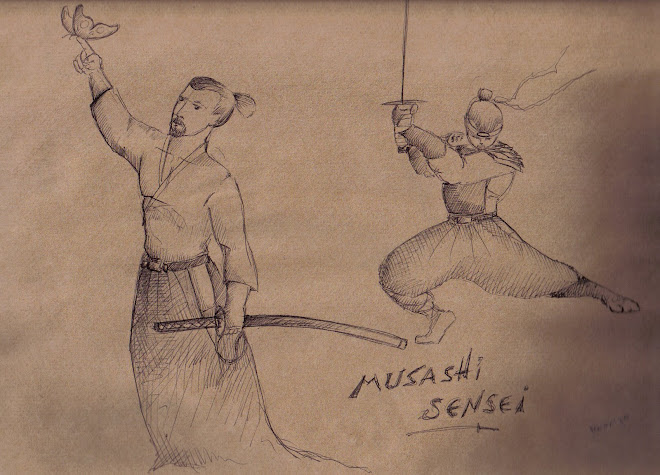 MUSASHI
SENSEI